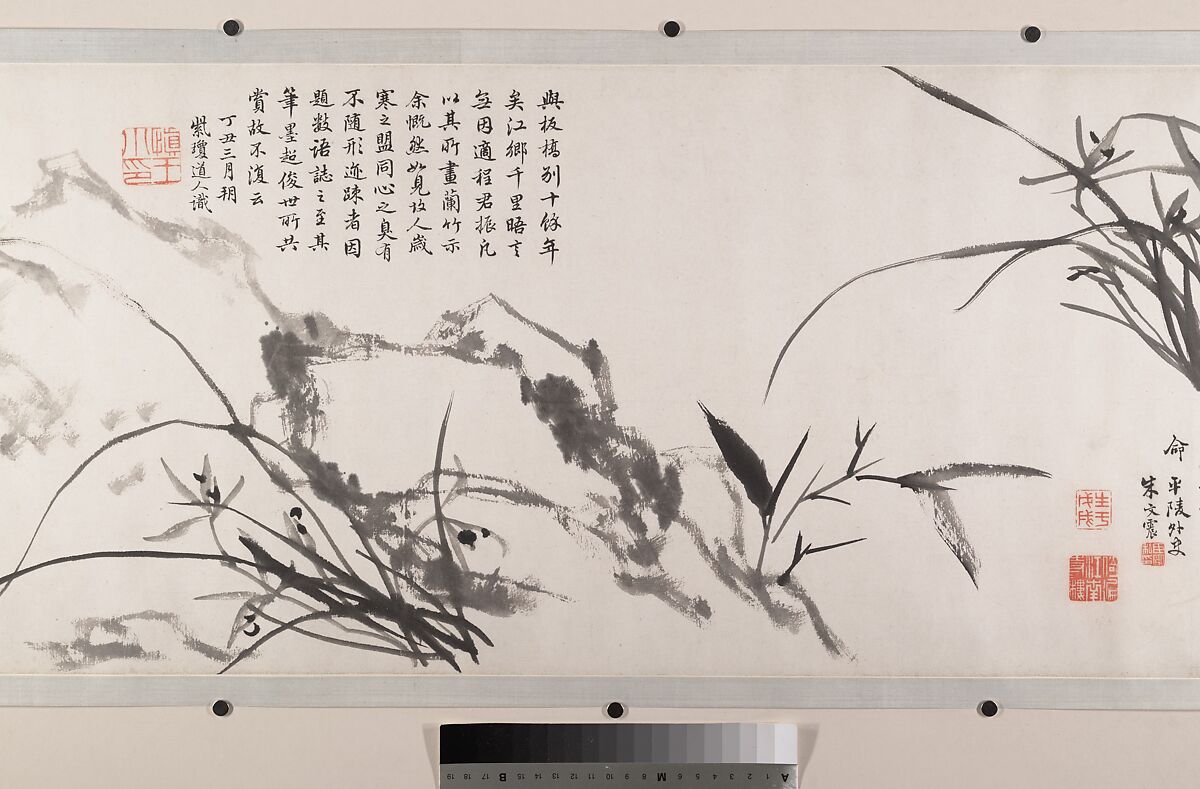 命
平陵外史
朱文震
生于戊戌
與板橋别十餘年
矣江鄉千里晤言
無因適程君振凡
以其所畫蘭竹示
余慨然如見故人歲
寒之盟同心之臭有
不隨形迹踈者因
題数语誌之至其
筆墨超俊世所共
賞故不復云
丁丑三月朔
紫瓊道人識
A 1 2 3 4 5 6 M 8 9 10 11 12 13 14 15 B 17 18 19